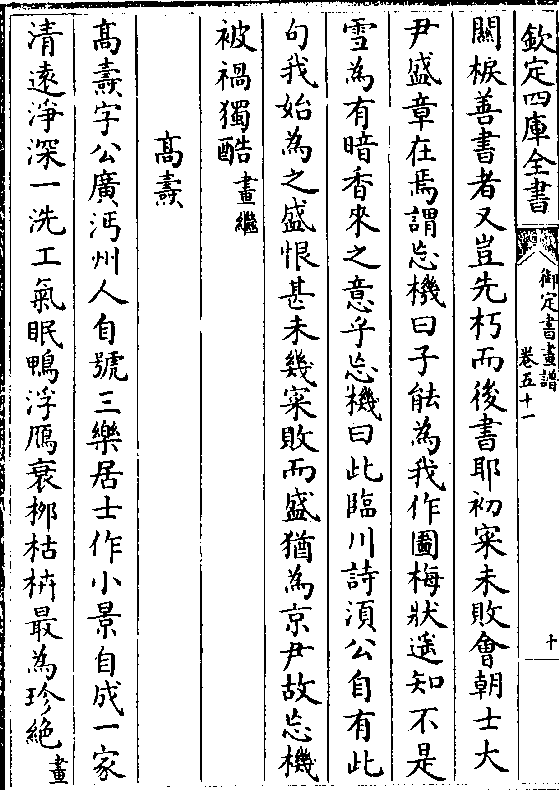 欽定四庫全書
御定書畫譜
卷五十一
十
關棙善書者又豈先朽而後書耶初寀未敗會朝士大
尹盛章在焉謂忘機曰子能為我作圖梅狀遥知不是
雪為有暗香來之意乎忘機曰此臨川詩湏公自有此
句我始為之盛恨甚未幾寀敗而盛猶為京尹故忘機
被禍獨酷畫繼
髙壽
髙壽字公廣沔州人自號三樂居士作小景自成一家
清逺淨深一洗工氣眠鴨浮鴈衰栁枯枿最為珍絶畫